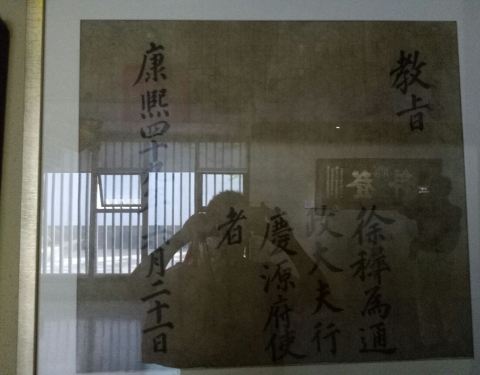 教旨
徐為通
政大夫行
慶源府使
者
康熙四十月二十一日